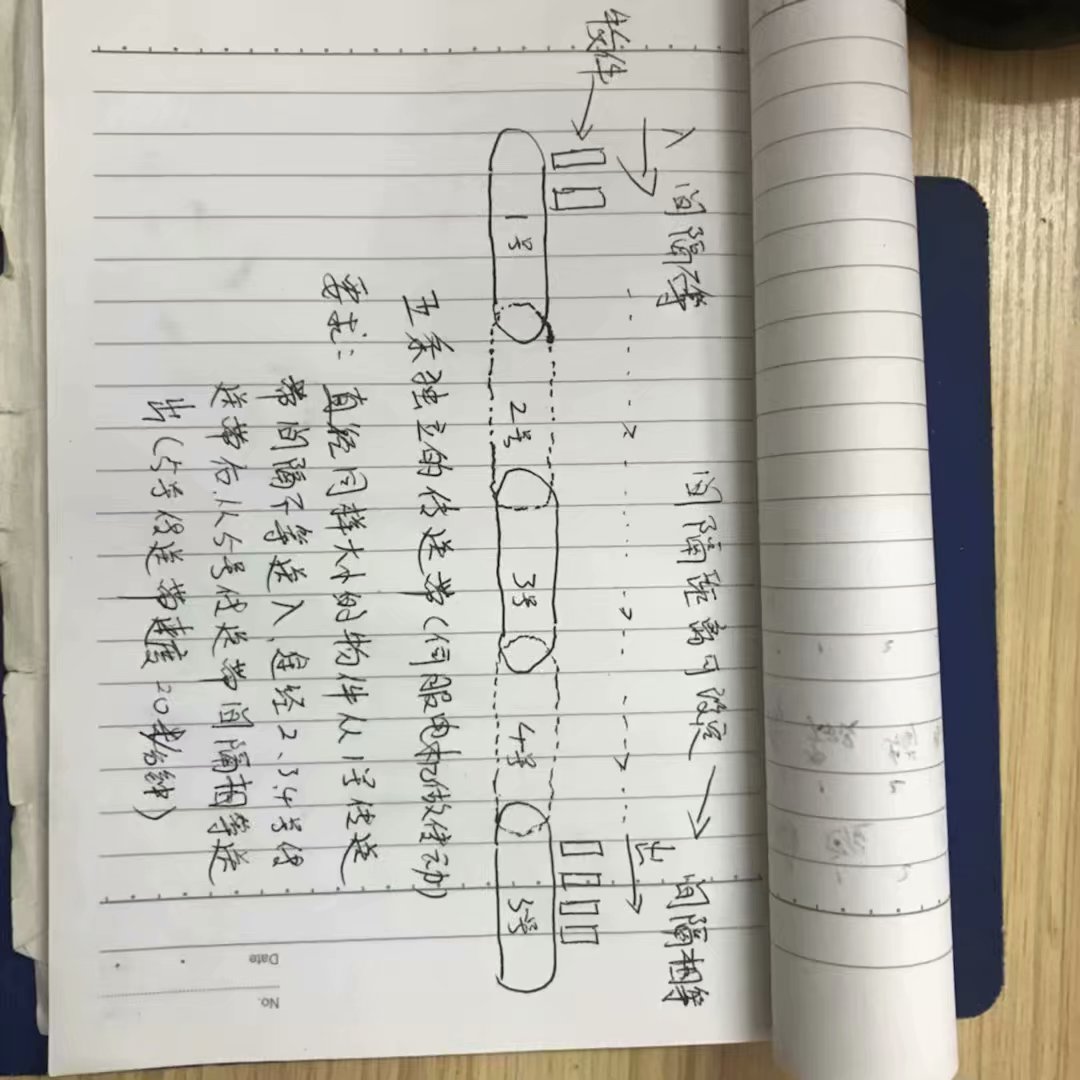 物件
入
间隔不等
间隔距离可设定
出
间隔相等
1号
2号
3号
4号
5号
五条独立的传送带(伺服电机做传动)
要求:直径同样大小的物件从1号传送
带间隔不等送入,途经2.3.4号传
送带后从5号传送带间隔相等送
出(5号传送带速度20米/分钟)
Date
No.